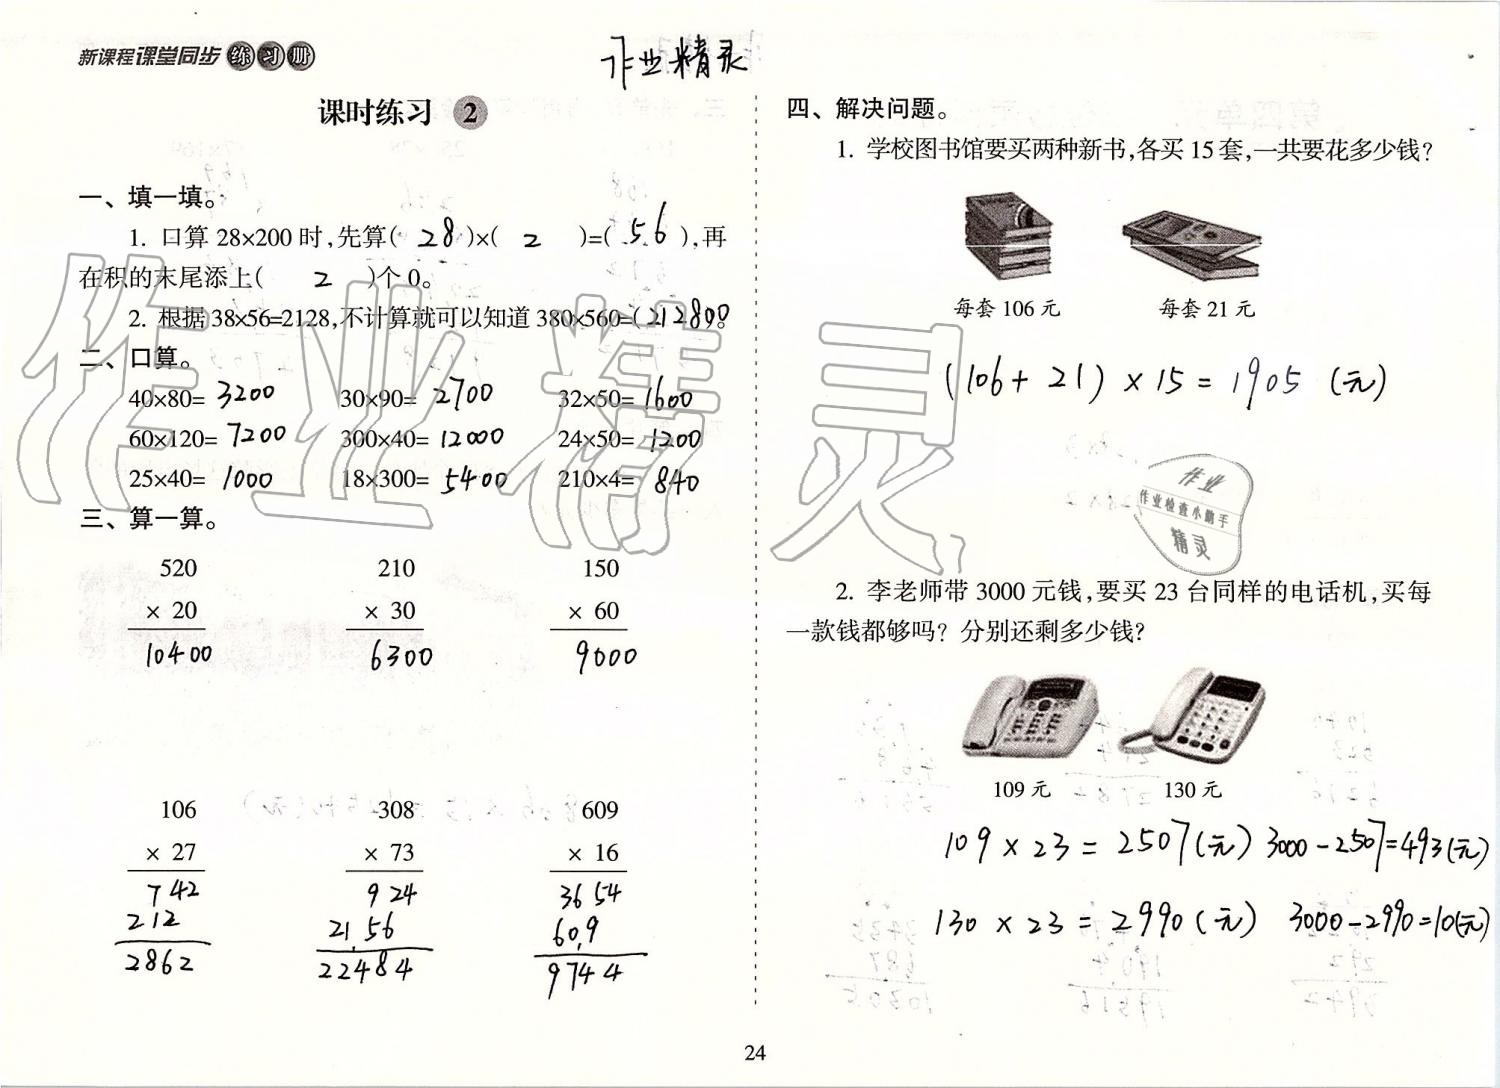 新课程课堂同步练习册
作业精灵
课时练习 2
一、填一填。
1. 口算 28×200 时,先算( 28 )×( 2 )=( 56 ),再
在积的末尾添上( 2 )个 0。
2. 根据 38×56=2128,不计算就可以知道 380×560=(212800)。
二、口算。
40×80= 3200 30×90= 2700 32×50= 1600
60×120= 7200 300×40= 12000 24×50= 1200
25×40= 1000 18×300= 5400 210×4= 840
三、算一算。
520 210 150
× 20 × 30 × 60
10400 6300 9000
106 308 609
× 27 × 73 × 16
742 924 3654
212 2156 609
2862 22484 9744
四、解决问题。
1. 学校图书馆要买两种新书,各买 15 套,一共要花多少钱?
每套 106 元 每套 21 元
(106+21)×15=1905 (元)
作业
作业检查小助手
精灵
2. 李老师带 3000 元钱,要买 23 台同样的电话机,买每
一款钱都够吗? 分别还剩多少钱?
109 元 130 元
109×23=2507(元) 3000-2507=493(元)
130×23=2990(元) 3000-2990=10(元)
24
作业精灵